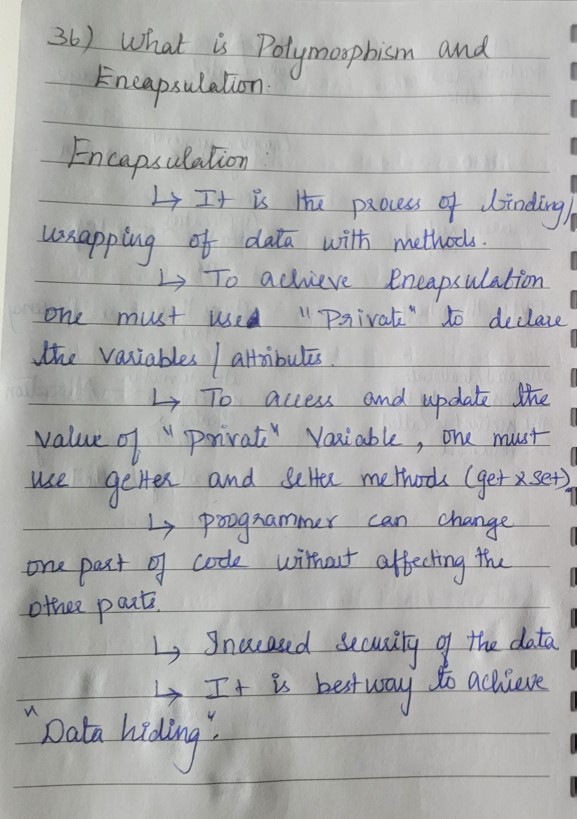 36) What is Polymorphism and
Encapsulation.
Encapsulation :
↳ It is the process of binding/
wrapping of data with methods.
↳ To achieve Encapsulation
one must use "Private" to declare
the variables / attributes.
↳ To access and update the
value of "private" variable, one must
use getter and setter methods (get & set)
↳ programmer can change
one part of code without affecting the
other parts.
↳ Increased security of the data
↳ It is best way to achieve
"Data hiding".